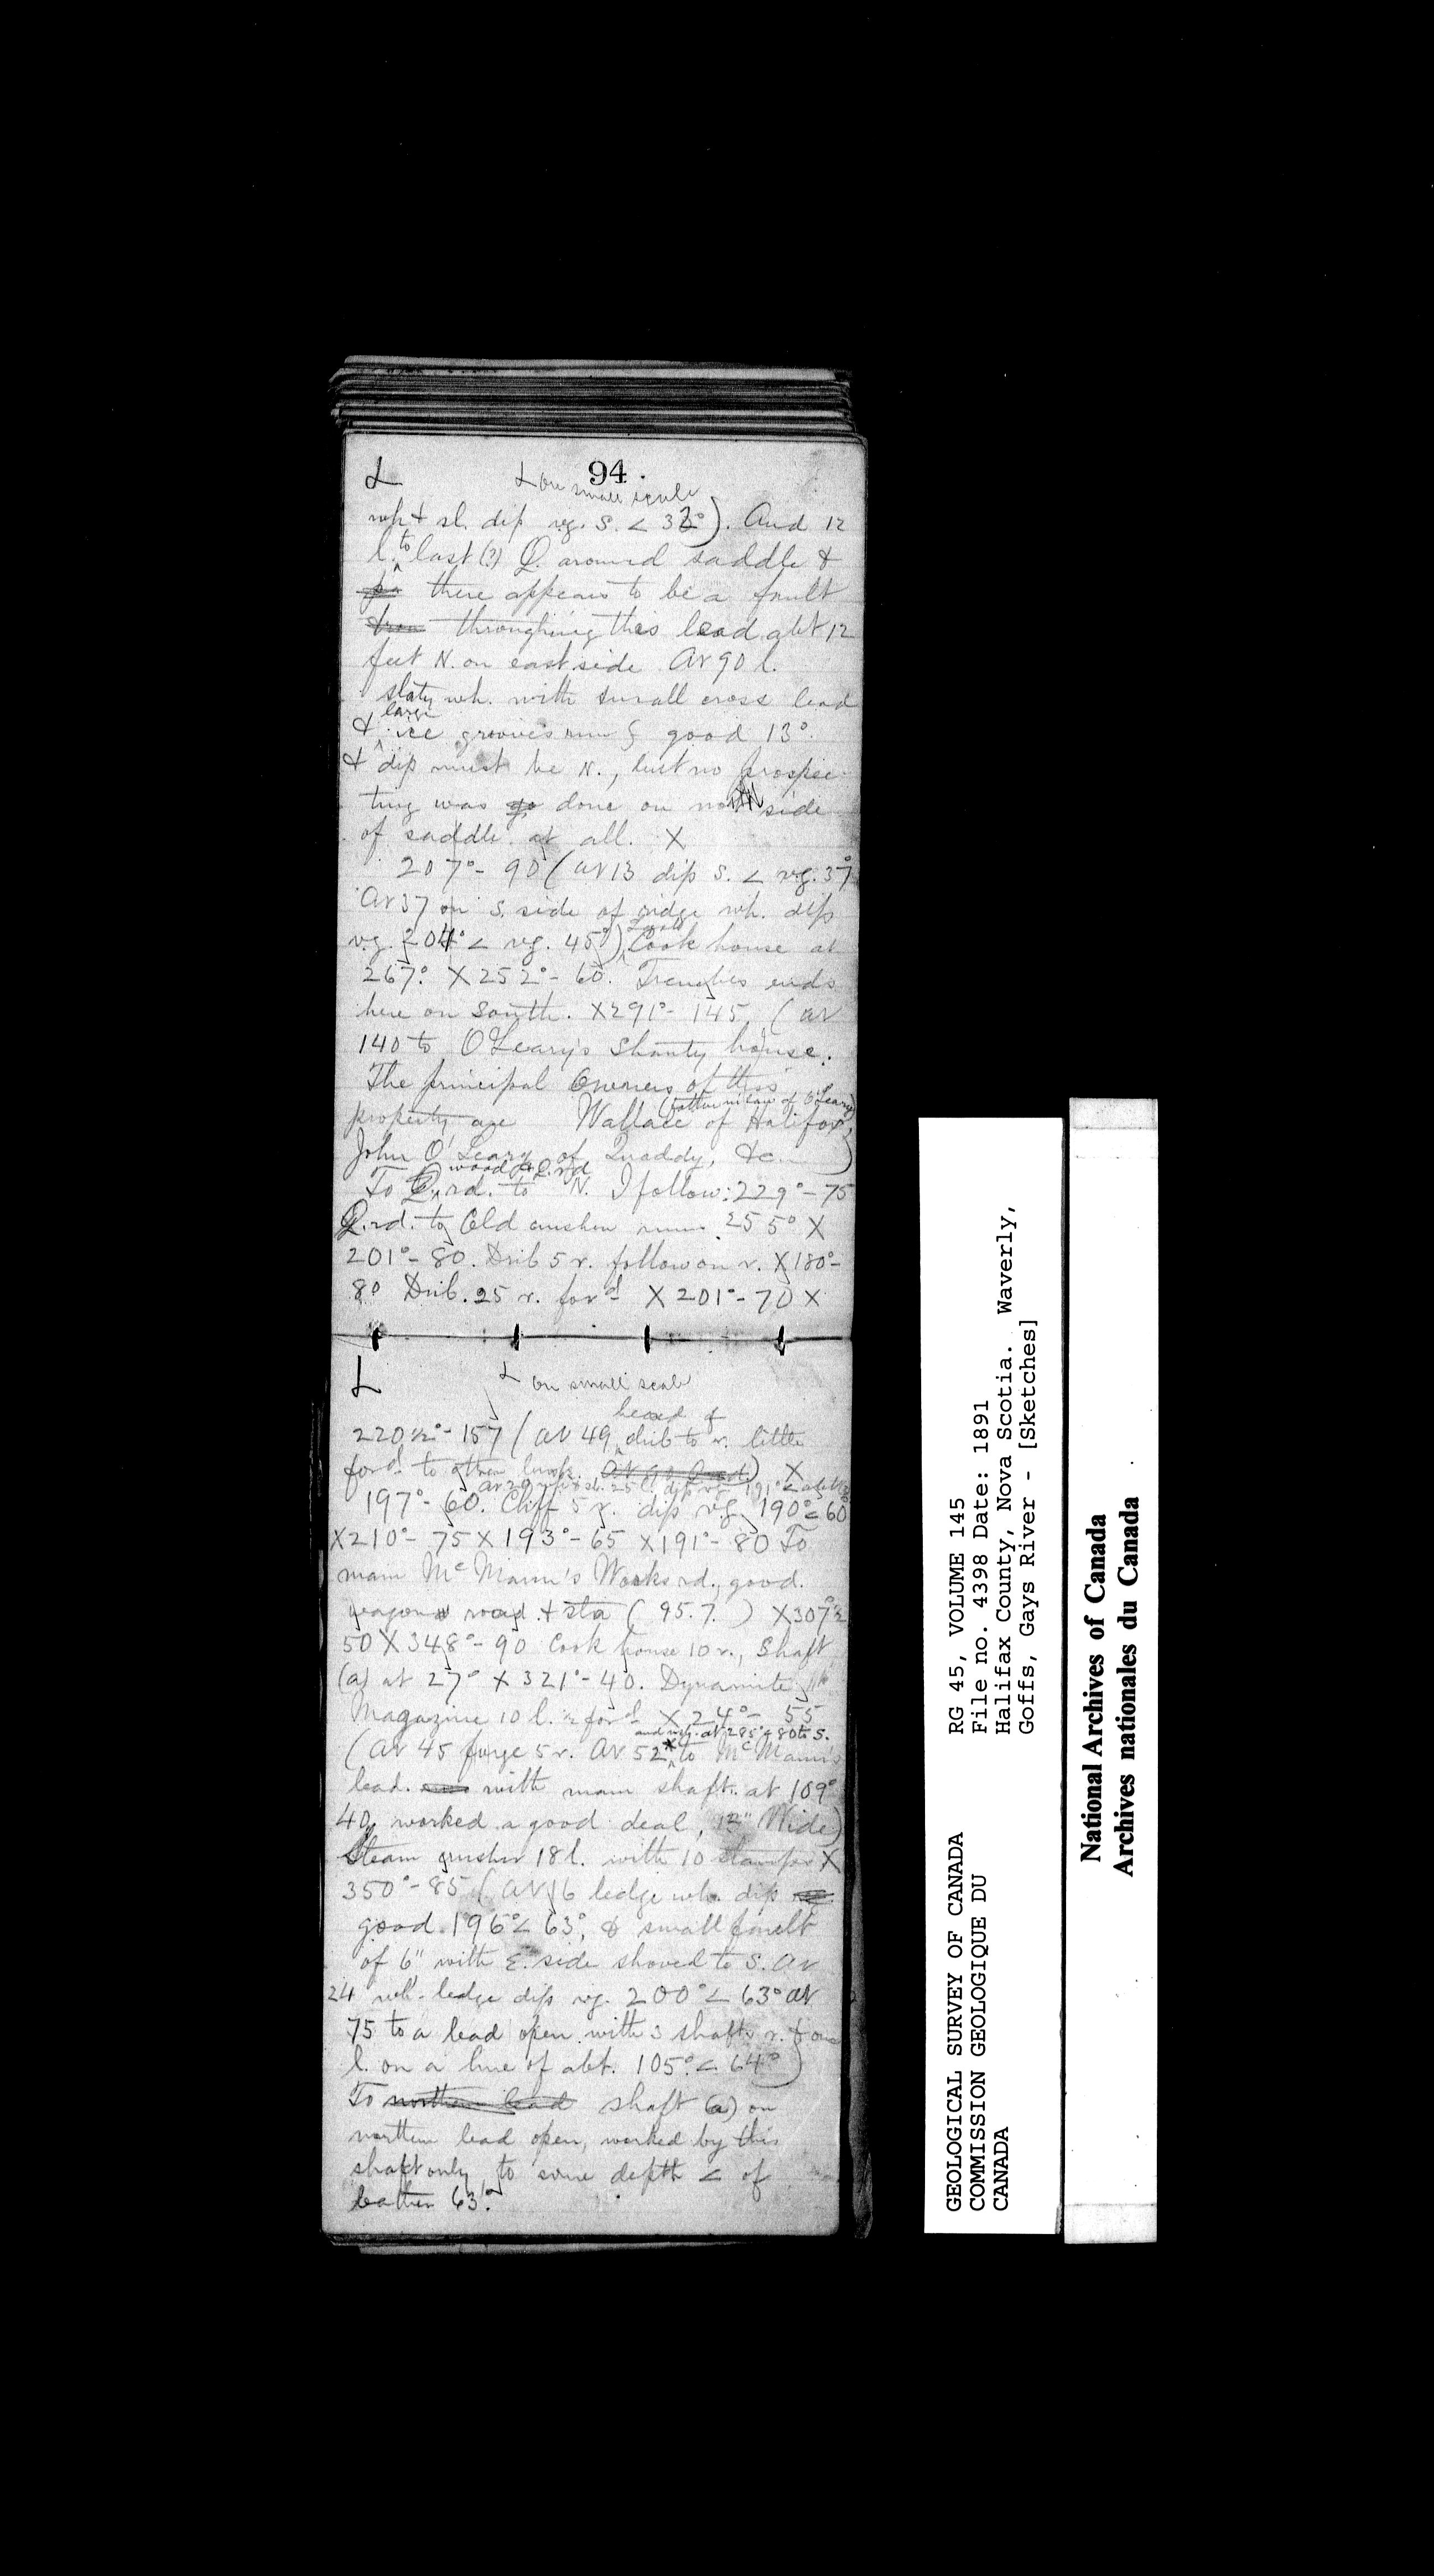 94.
L L on small scale
wh & sl. dip vg. S. < 32°). And 12
l. to last (?) Q. around saddle &
there appears to be a fault
throughing this lead abt 12
feet N. on east side At 90 l.
slaty wh. with small cross lead
& large ice grooves run good 13°
& dip must be N., but no prospec-
ting was done on north side
of saddle at all. X
207° - 90 (at 13 dip S. < vg. 37°
At 37 on S. side of ridge wh. dips
vg. 204° < vg. 45°) Cook house at
267°. X 252° - 60. Trenches ends
here on South. X 291° - 145 (at
140 to O'Leary's Shanty house.
The principal Owners of this
property are Wallace (father in law of O'Leary) of Halifax,
John O'Leary of Quoddy, &c.)
To Q. rd. to wood & Q. rd N. I follow: 229° - 75
Q. rd. to Old crusher runs 255° X
201° - 80. Drib 5 r. follow on r. X 180° -
80 Drib. 25 r. for^d X 201° - 70 X
L L on small scale
220 1/2° - 157 (at 49 head of drib to r. little
for^d. to other X
197° - 60. Cliff 5 r. dip vg. 190° < 60°
X 210° - 75 X 193° - 65 X 191° - 80 To
main McMann's Works rd., good
wagon road & sta (95.7.) X 307° 1/2
50 X 348° - 90 Cook house 10 r., Shaft
(a) at 27° X 321° - 40. Dynamite
Magazine 10 l. & for^d X 24° - 55
and vg. at 285° < 80 to S.
(At 45 forge 5 r. At 52 * to McMann's
lead. with main shaft. at 109°
40, worked a good deal, 12" Wide)
Steam crusher 18 l. with 10 stamps X
350° - 85 (At 16 ledge wh. dip
good 196° < 63°, & small fault
of 6" with E. side shoved to S. At
24 wh. ledge dips vg. 200° < 63° at
75 to a lead open with 3 shafts r. & one
l. on a line of abt. 105° < 64°)
To northern lead shaft (a) on
northern lead open, worked by this
shaft only to some depth < of
leather 63°.
GEOLOGICAL SURVEY OF CANADA
COMMISSION GEOLOGIQUE DU
CANADA
RG 45, VOLUME 145
File no. 4398 Date: 1891
Halifax County, Nova Scotia. Waverly,
Goffs, Gays River - [Sketches]
National Archives of Canada
Archives nationales du Canada